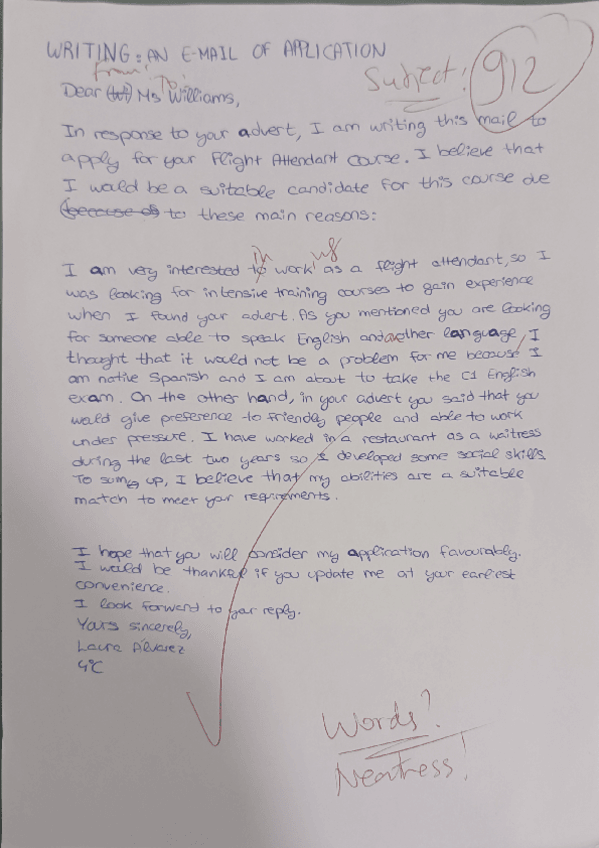 WRITING: AN E-MAIL OF APPLICATION
From: To:
Subject: 9'2
Dear Ms Williams,
In response to your advert, I am writing this mail to
apply for your Flight Attendant course. I believe that
I would be a suitable candidate for this course due
(because of) to these main reasons:
in ing
I am very interested to work as a flight attendant, so I
was looking for intensive training courses to gain experience
when I found your advert. As you mentioned you are looking
for someone able to speak English and other language, I
thought that it would not be a problem for me because I
am native Spanish and I am about to take the C1 English
exam. On the other hand, in your advert you said that you
would give preference to friendly people and able to work
under pressure. I have worked in a restaurant as a waitress
during the last two years so I developed some social skills.
To sum up, I believe that my abilities are a suitable
match to meet your requirements.
I hope that you will consider my application favourably.
I would be thankful if you update me at your earliest
convenience.
I look forward to your reply.
Yours sincerely,
Laura Álvarez
4ºC
Words?
Neatness!